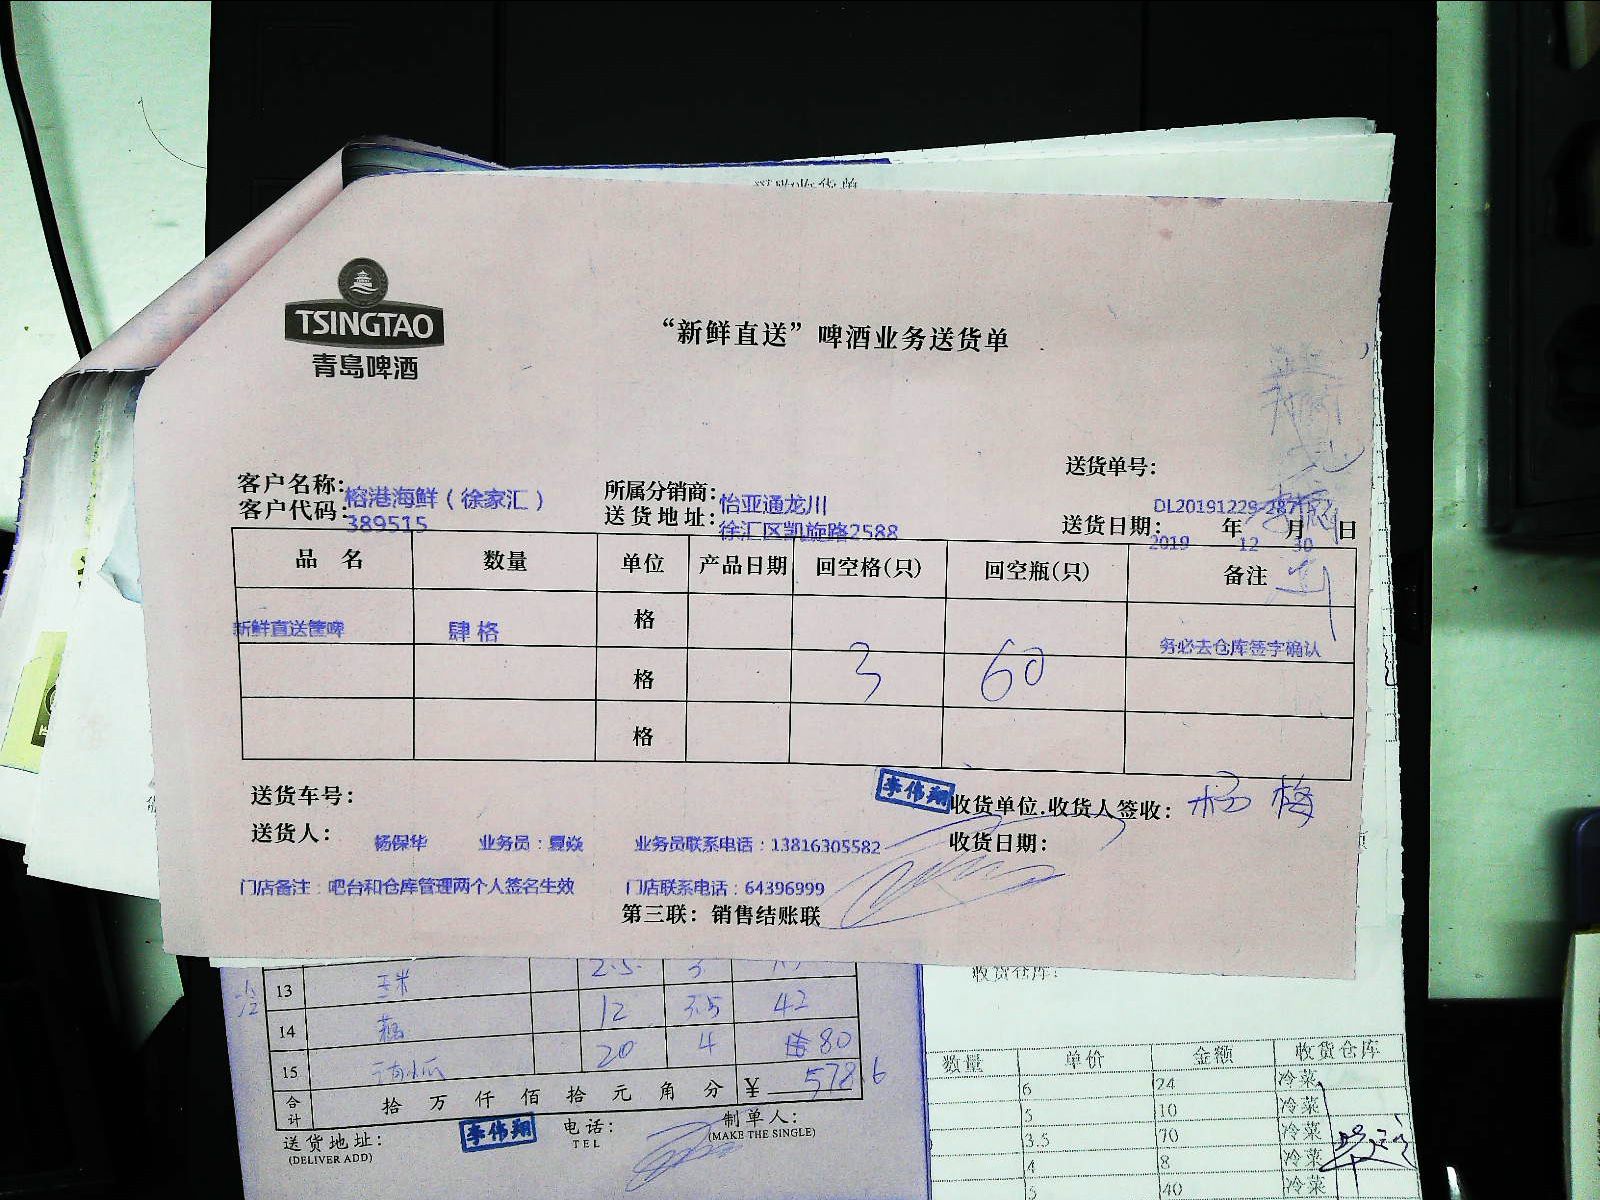 TSINGTAO
青岛啤酒
“新鲜直送”啤酒业务送货单
送货单号：
客户名称： 榕港海鲜（徐家汇） 所属分销商： 怡亚通龙川 DL20191229-287
客户代码： 389515 送货地址： 徐汇区凯旋路2588 送货日期： 2019 年 12 月 30 日
品 名 数量 单位 产品日期 回空格(只) 回空瓶(只) 备注
新鲜直送筐啤 肆格 格 务必去仓库签字确认
格 3 60
格
送货车号： 李伟翔 收货单位.收货人签收： 杨梅
送货人： 杨保华 业务员：夏焱 业务员联系电话：13816305582 收货日期：
门店备注：吧台和仓库管理两个人签名生效 门店联系电话：64396999
第三联：销售结账联
收货仓库：
13 玉米 2.5 3
14 12 3.5 42
15 20 4 80
合计 拾 万 仟 佰 拾 元 角 分 ¥ 578.6
送货地址： 李伟翔 电话： 制单人：
(DELIVER ADD) TEL (MAKE THE SINGLE)
数量 单价 金额 收货仓库
6 24 冷菜
5 10 冷菜
3.5 70 冷菜
4 8 冷菜
5 40 冷菜